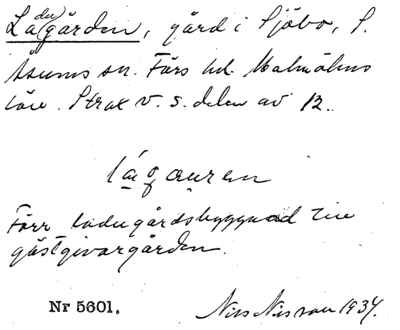 La(du)gården, gård i Sjöbo, S.
Åsums sn. Färs hd. Malmöhus
län. Strax v. s. delen av 12.
lágauren
Förr ladugårdsbyggnad till
gästgivargården.
Nr 5601. Nils Nilsson 1934.